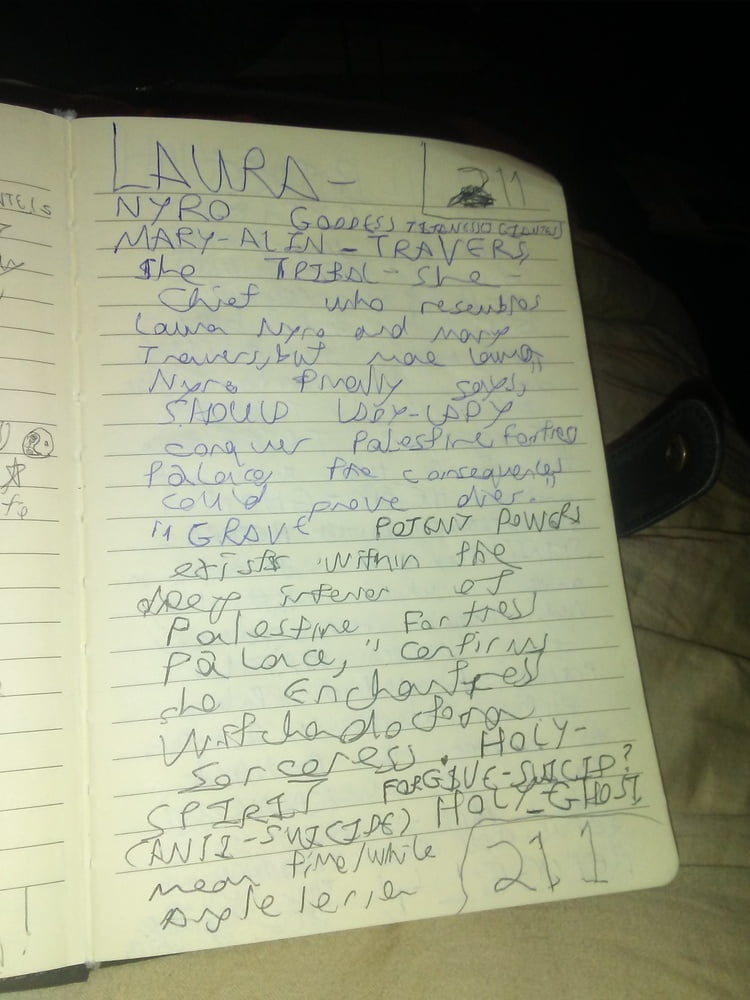 LAURA- 211
NYRO GODDESS
MARY-ALIN-TRAVERS,
the TRIBAL-she-
Chief who resembles
Laura Nyro and Mary
Travers, but more Laura
Nyro finally says,
SHOULD
conquer Palestine fortress
Palace, the consequences
could prove dier."
"GRAVE POTENT POWERS
exists within the
deep interer of
Palestine Fortress
Palace," confirms
the Enchantress
Sorceress. HOLY-
SPIRIT FORGIVE-SUICID?
(ANTI-SUICIDE) HOLY-GHOST
mean time/while
211